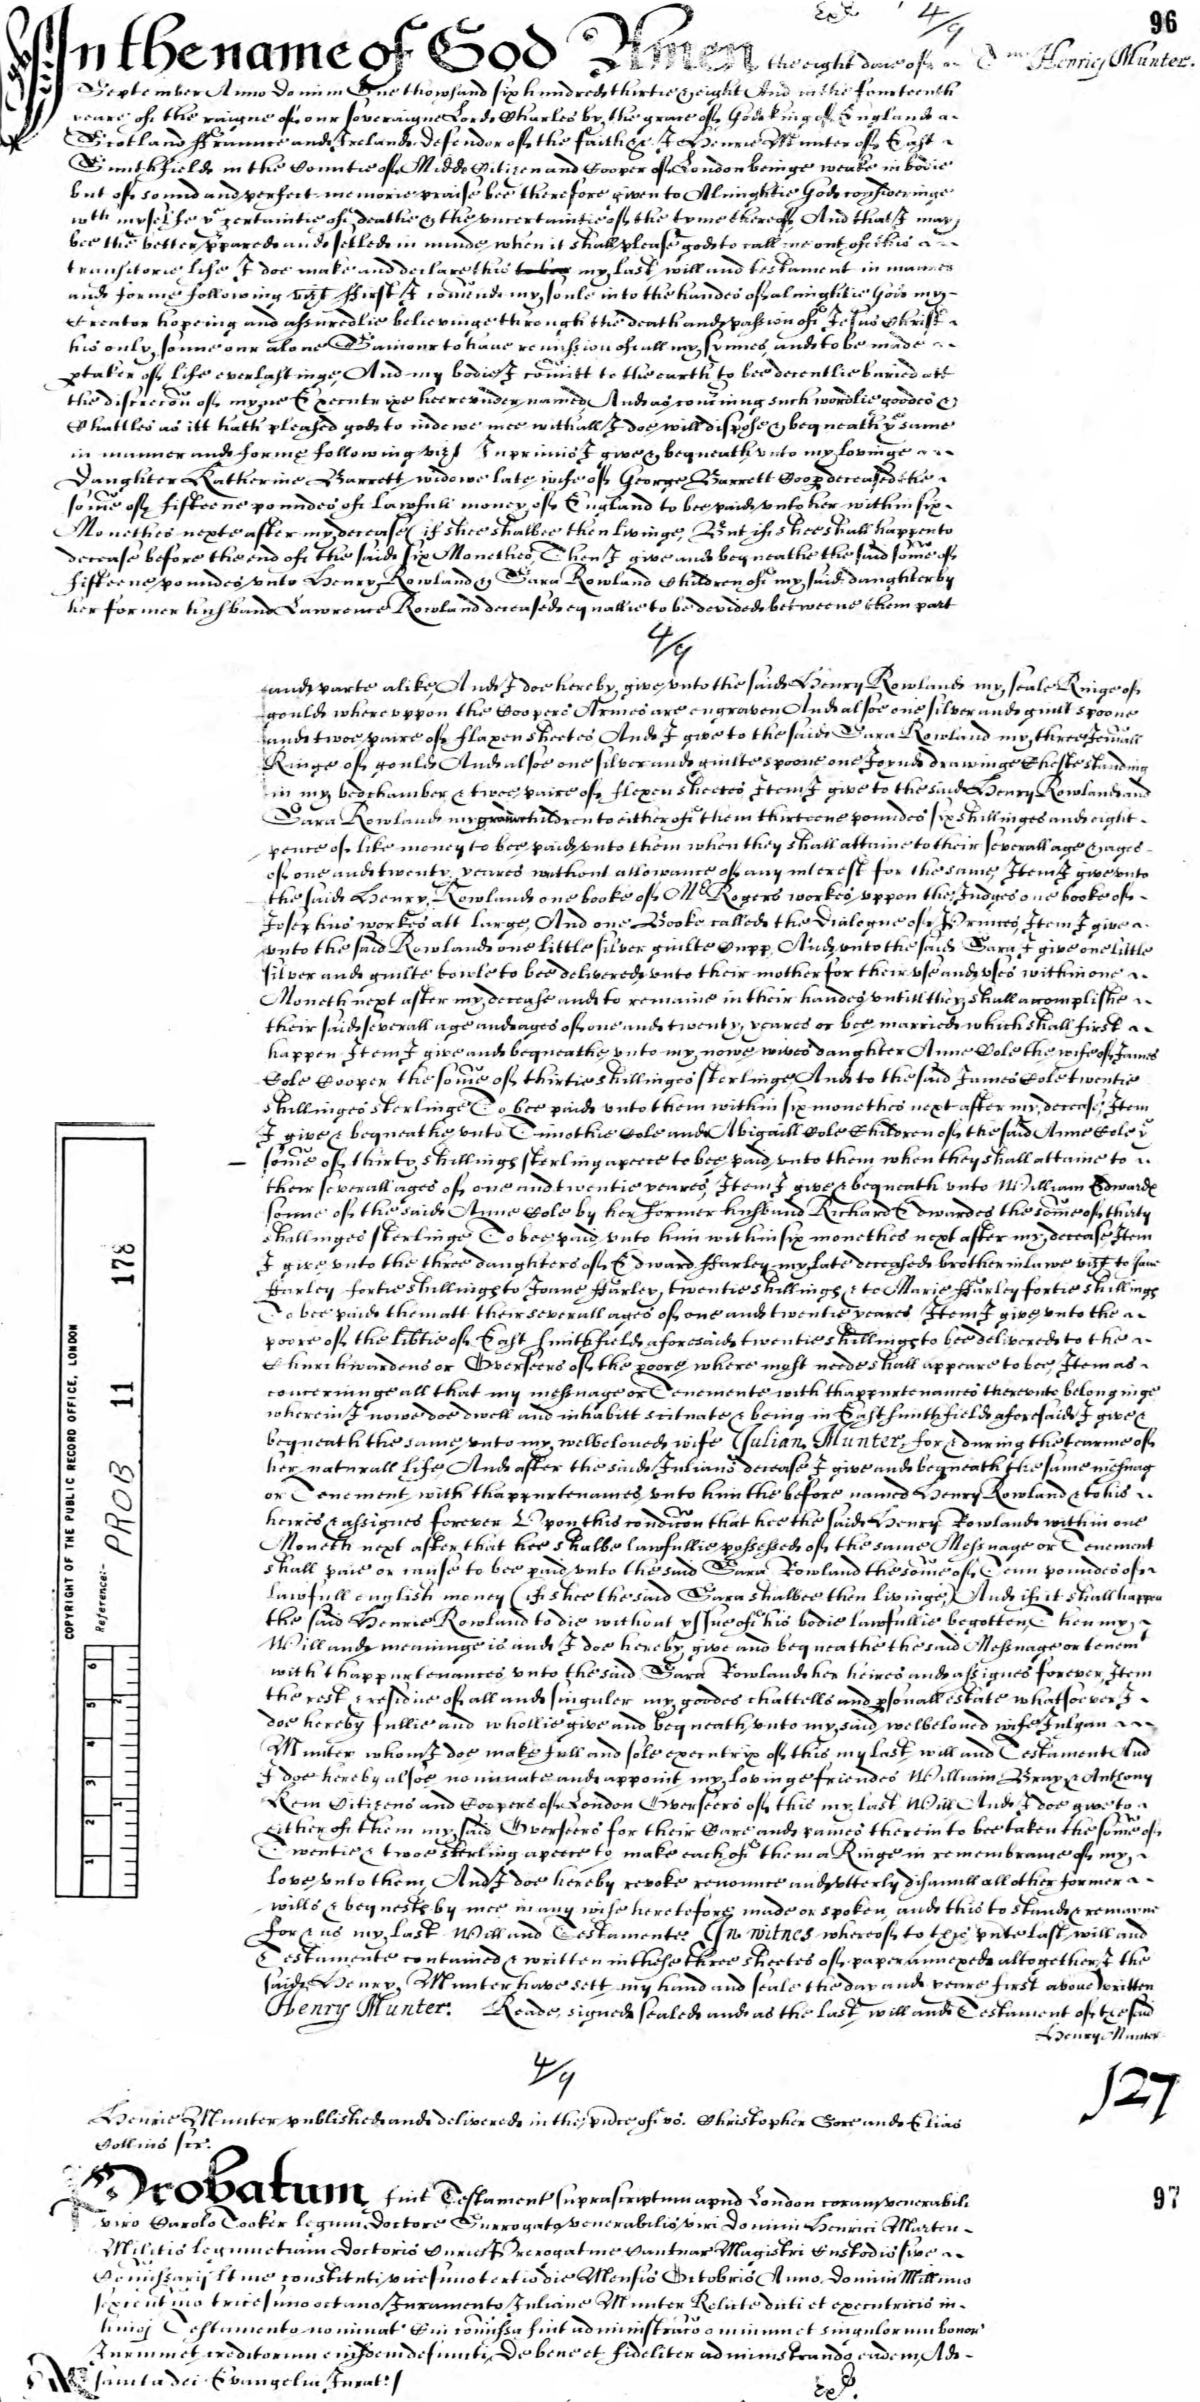 96
4/9
Tm Henrici Munter.
In the name of God Amen the eight daie of
September Anno Domini One thowsand six hundred thirtie & eight And in the fourteenth
yeare of the raigne of our soveraigne Lord Charles by the grace of God king of England
Scotland Fraunce and Ireland defendor of the faith &c. I Henrie Munter of East
Smithfield in the Countie of Midd Citizen and Cooper of London beinge weake in bodie
but of sound and perfect memorie praise bee therefore given to Almightie God consideringe
wth my selfe ye certaintie of deathe & the uncertaintie of the tyme thereof And that I may
bee the better ppared and setled in minde when it shall please god to call me out of this
transitorie life I doe make and declare this my last will and testament in manner
and forme following vizt First I comend my soule into the handes of almightie God my
Creator hopeing and assuredlie believinge through the death and passion of Jesus Christ
his only sonne our alone Saviour to have remission of all my synnes and to be made
ptaker of life everlastinge And my bodie I comitt to the earth to bee decentlie buried att
the discrecon of myne Executrixe heereunder named And as concning such wordlie goodes &
Chattles as itt hath pleased god to indewe mee withall I doe will dispose & bequeath ye same
in manner and forme following vizt Inprimis I give & bequeath unto my lovinge
Daughter Katherine Barrett widowe late wife of George Barrett Coop deceased the
some of fifteene poundes of lawfull money of England to bee paid unto her within six
Monethes nexte after my decease (if shee shalbee then livinge) But if shee shall happen to
decease before the end of the said six Monethes Then I give and bequeathe the said some of
fifteene poundes unto Henry Rowland & Sara Rowland Children of my said daughter by
her former husband Lawrence Rowland deceased equallie to be devided betweene them part
4/9
and parte alike And I doe hereby give unto the said Henry Rowland my seale Ringe of
gould whereuppon the Coopers Armes are engraven And alsoe one silver and guilt spoone
and twoe paire of flaxen sheetes And I give to the said Sara Rowland my three Jewall
Ringe of gould And alsoe one silver and guilte spoone one Joynd drawinge Cheste standing
in my bedchamber & twoe paire of flexen sheetes Item I give to the said Henry Rowland and
Sara Rowland my grandchildren to either of them thirteene poundes six shillinges and eight
pence of like money to bee paid unto them when they shall attaine to their severall age & ages
of one and twenty yeares without allowance of any interest for the same Item I give unto
the said Henry Rowland one booke of Mr Rogers workes uppon the Judges one booke of
Josephus workes att large And one Booke called the Dialogue of Princes Item I give
unto the said Rowland one little silver guilte Cupp And unto the said Sara I give one little
silver and guilte bowle to bee delivered unto their mother for their use and uses within one
Moneth next after my decease and to remaine in their handes untill they shall accomplishe
their said severall age and ages of one and twenty yeares or bee married which shall first
happen Item I give and bequeathe unto my nowe wives daughter Anne Cole the wife of James
Cole Cooper the some of thirtie shillinges sterlinge And to the said James Cole twentie
shillinges sterlinge To bee paid unto them within six monethes next after my decease Item
I give & bequeathe unto Timothie Cole and Abigaill Cole Children of the said Anne Cole ye
some of thirty shillings sterling apeece to bee paid unto them when they shall attaine to
their severall ages of one and twentie yeares Item I give & bequeath unto William Edwardes
sonne of the said Anne Cole by her former husband Richard Edwardes the some of thirty
shillinges sterlinge To bee paid unto him within six monethes next after my decease Item
I give unto the three daughters of Edward Harley my late deceased brother in lawe vizt to
Harley fortie shillings to Joane Harley twentie shillings & to Marie Harley fortie shillings
To bee paid them att their severall ages of one and twentie yeares Item I give unto the
poore of the libtie of East smithfield aforesaid twentie shillings to bee delivered to the
Churchwardens or Overseers of the poore where most neede shall appeare to bee Item as
concerninge all that my messuage or Tenemente with thappurtenances thereunto belonginge
wherein I nowe doe dwell and inhabitt scituate & being in East smithfield aforesaid I give &
bequeath the same unto my welbeloved wife Julian Munter for & during the tearme of
her naturall life And after the said Julians decease I give and bequeath the same messuag
or Tenement with thappurtenances unto him the before named Henry Rowland & to his
heires & assignes forever Upon this condicon that hee the said Henry Rowland within one
Moneth next after that hee shalbe lawfullie possessed of the same Messuage or Tenement
shall paie or cause to bee paid unto the said Sara Rowland the some of Tenn poundes of
lawfull english money (if shee the said Sara shalbee then livinge) And if it shall happen
the said Henrie Rowland to die without yssue of his bodie lawfullie begotten Then my
Will and meaninge is and I doe hereby give and bequeathe the said Messuage or tenemt
with thappurtenances unto the said Sara Rowland her heires and assignes forever Item
the rest & residue of all and singuler my goodes chattells and psonall estate whatsoever I
doe hereby fullie and whollie give and bequeath unto my said welbeloved wife Julyan
Munter whom I doe make full and sole executrix of this my last will and Testament And
I doe hereby alsoe nominate and appoint my lovinge friendes William Bray & Anthony
Kem Citizens and Coopers of London Overseers of this my last Will And I doe give to
either of them my said Overseers for their Care and paines therein to bee taken the some of
Twentie & twoe sterling apeece to make each of them a Ringe in remembrance of my
love unto them And I doe hereby revoke renounce and utterly disanull all other former
wills & bequests by mee in any wise heretofore made or spoken and this to stand & remayne
for & as my last Will and Testamente In witnes whereof to this pnte last will and
Testamente contained & written in these three sheetes of paper annexed altogether I the
said Henry Munter have sett my hand and seale the day and yeare first above written
Henry Munter. Reade signed sealed and as the last will and Testament of the said
Henry Munter
4/9
127
Henrie Munter published and delivered in the pnce of us. Christopher Gore and Elias
Collins scr.
97
Probatum fuit Testament suprascriptum apud London coram venerabili
viro Carolo Tooker legum Doctore Surrogato venerabilis viri Domini Henrici Marten
Militis legum etiam Doctoris Curie Prerogative Cantuar Magistri Custodis sive
Comissarij ltime constituti vicesimo tertio die Mensis Octobris Anno Domini Millimo
sexcentmo tricesimo octavo Juramento Juliane Munter Relicte dicti et executricis in
huiusmoi Testamento nominat Cui comissa fuit administraco omnium et singulorum bonor
Jurium et creditorum eiusdem defuncti De bene et fideliter administrando eadem Ad
sancta dei Evangelia Jurat:/
Exr.
COPYRIGHT OF THE PUBLIC RECORD OFFICE, LONDON
Reference:- PROB 11 178
1 2 3 4 5 6
1 2